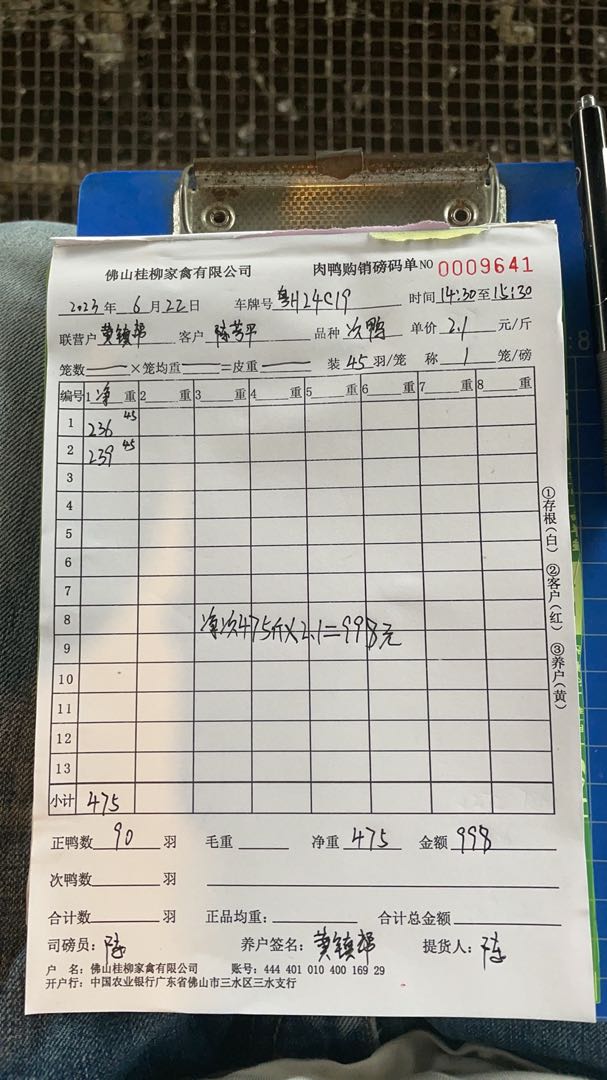 佛山桂柳家禽有限公司 肉鸭购销磅码单 NO 0009641
2023年 6月22日 车牌号 H24C19 时间 14:30至15:30
联营户 黄镇邦 客户 陈芳平 品种 次鸭 单价 2.1 元/斤
笼数 — ×笼均重 — =皮重 — 装 45 羽/笼 称 1 笼/磅
编号 1 净 重 2 重 3 重 4 重 5 重 6 重 7 重 8 重
1 236 45
2 239 45
3
4
5
6
7
8
净次475斤×2.1=998元
9
10
11
12
13
小计 475
①存根(白) ②客户(红) ③养户(黄)
正鸭数 90 羽 毛重 净重 475 金额 998
次鸭数 羽
合计数 羽 正品均重: 合计总金额
司磅员: 陈 养户签名: 黄镇邦 提货人: 陈
户 名: 佛山桂柳家禽有限公司 账号: 444 401 010 400 169 29
开户行: 中国农业银行广东省佛山市三水区三水支行